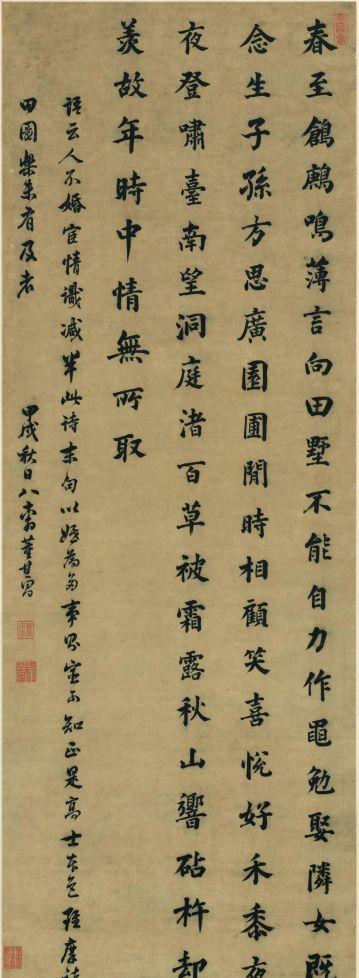 春至鶬鶊鳴薄言向田墅不能自力作黽勉娶隣女既
念生子孫方思廣園圃閒時相顧笑喜悅好禾黍夜
夜登嘯臺南望洞庭渚百草被霜露秋山響砧杵却
羨故年時中情無所取
語云人不婚宦情識減半此詩末句以婚為多事不知正是高士本色摩詰
田園樂未有及者
甲戌秋日八十翁董其昌